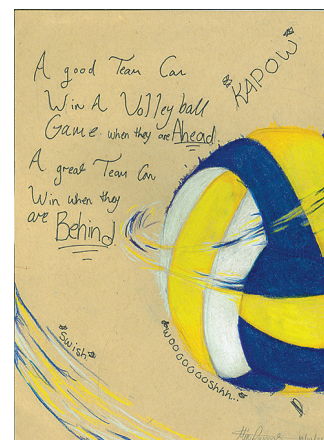 A good Team Can
Win A Volleyball
Game when they are Ahead.
A great Team Can
Win when they
are Behind
*KAPOW*
*Swish*
*WOOOOOOOshhh..*